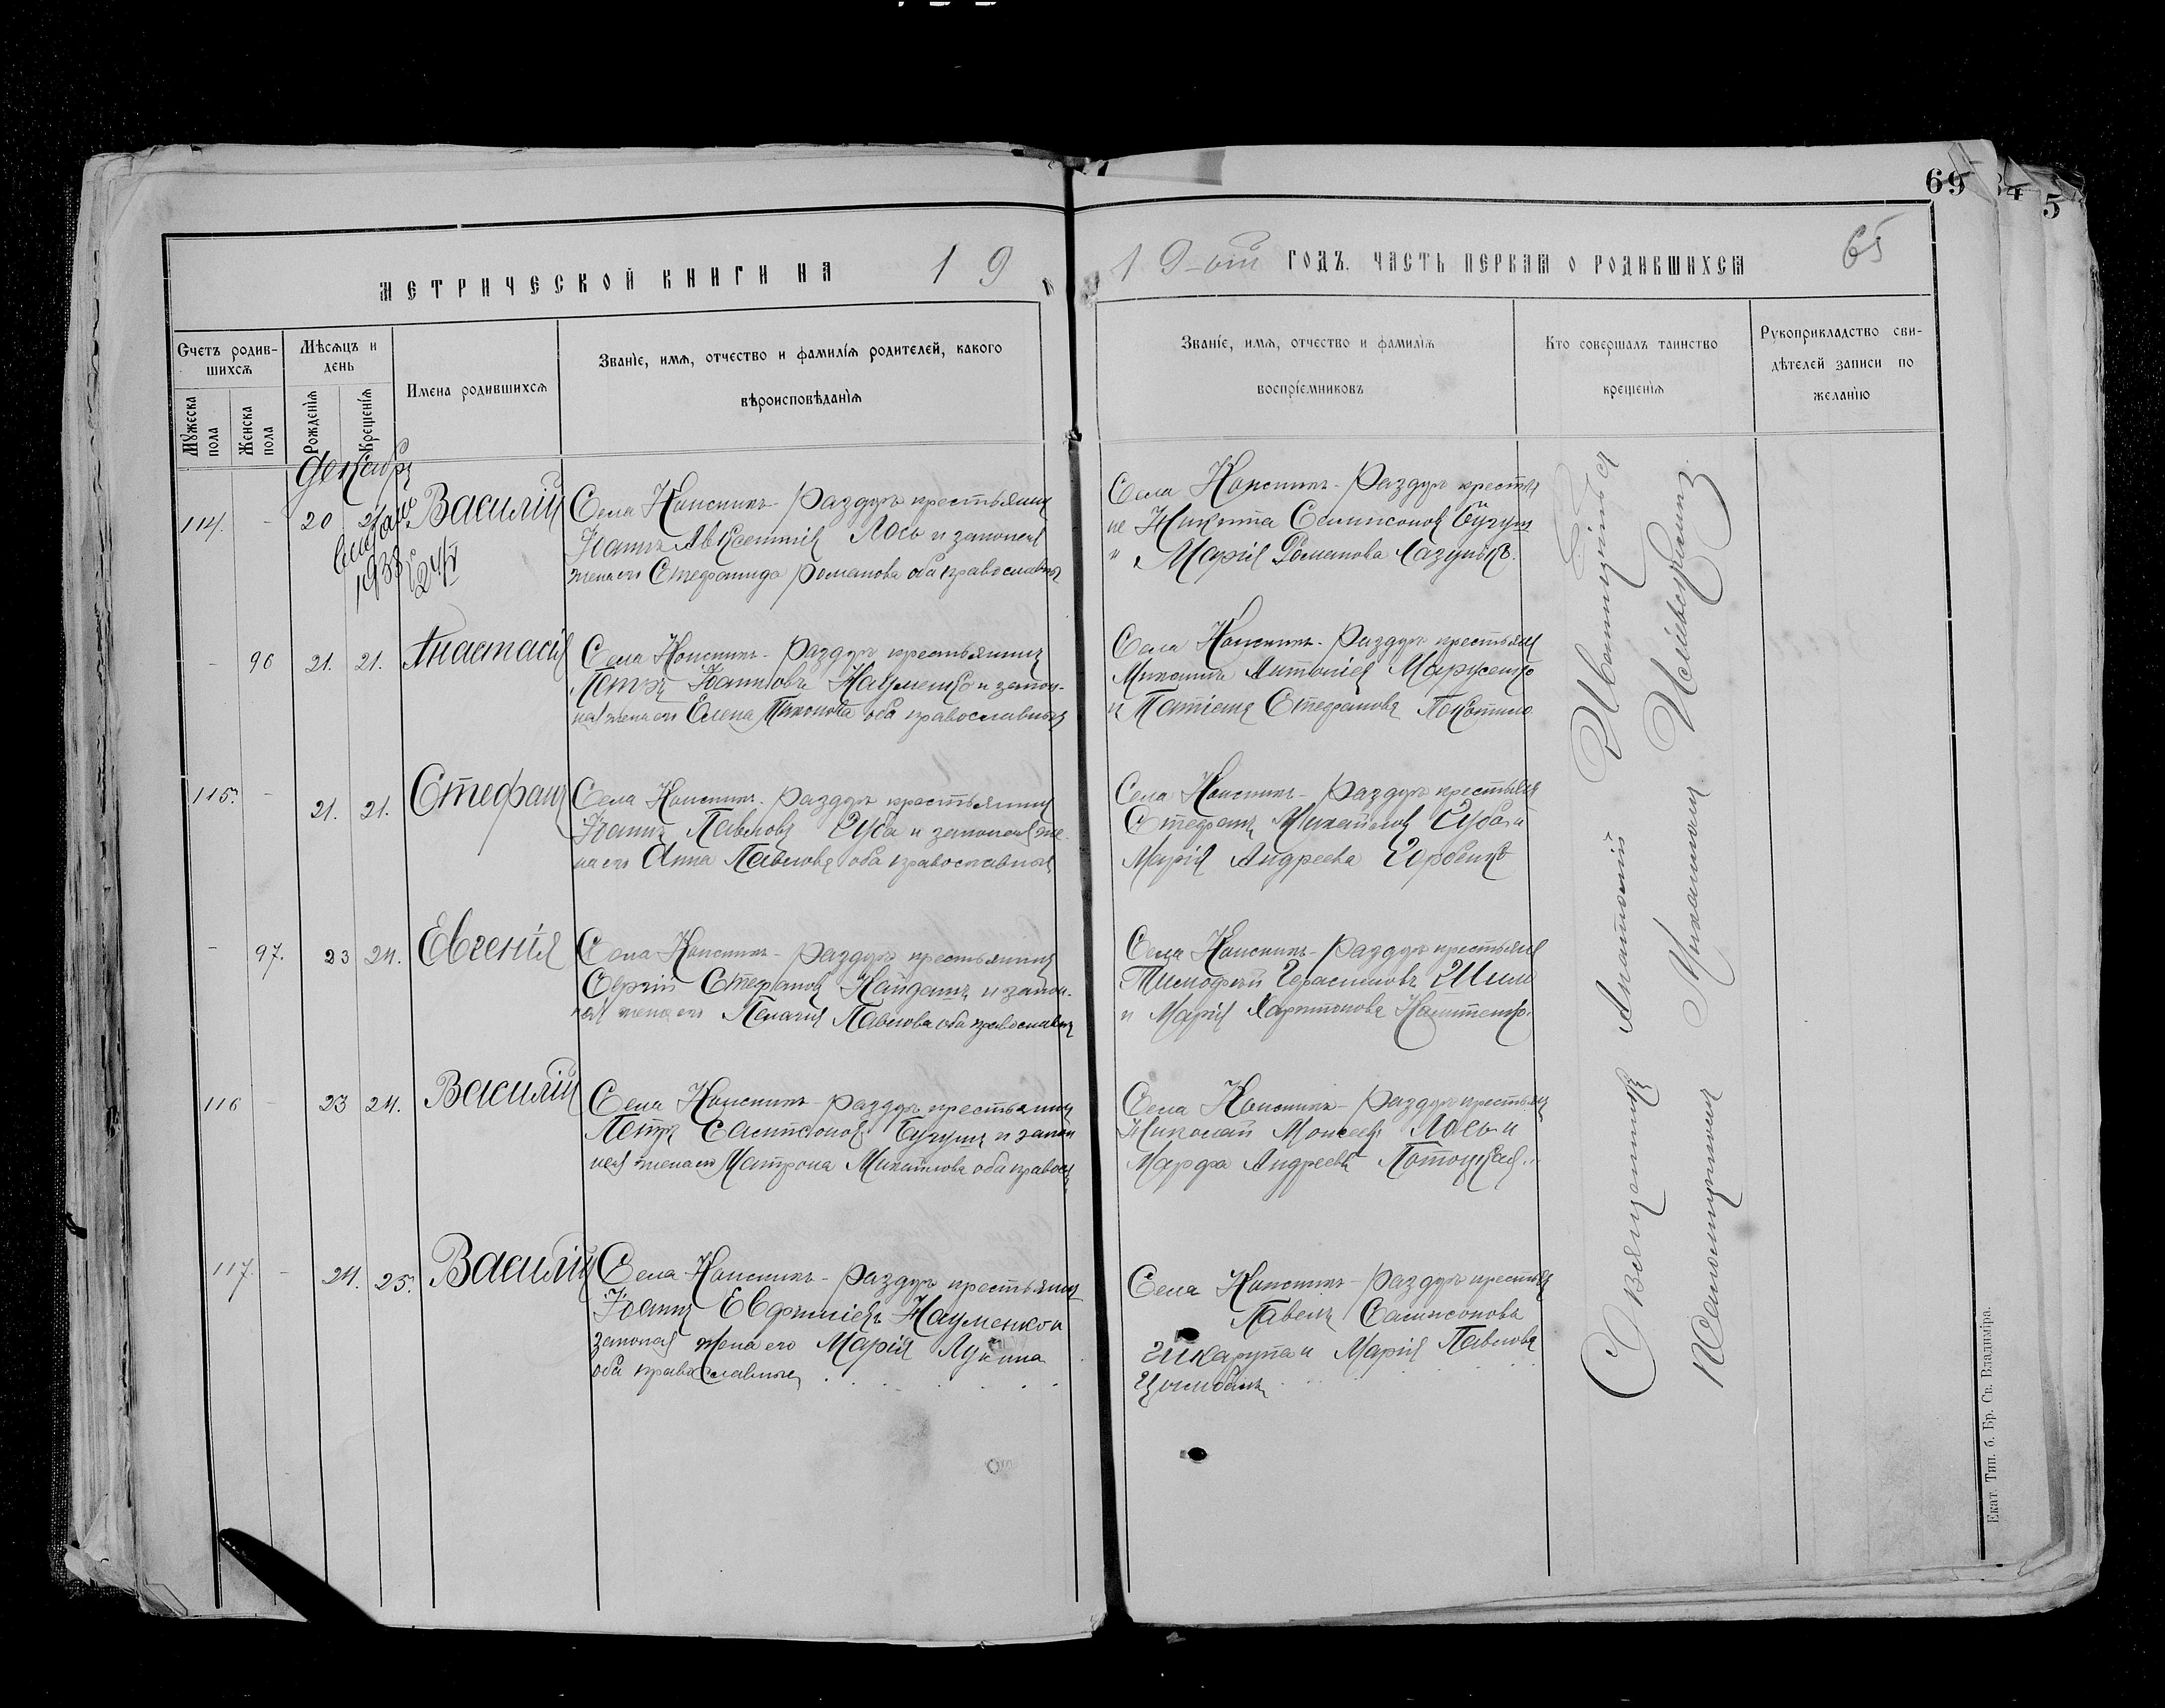 69
5
65
МЕТРИЧЕСКОЙ КНИГИ НА 19
19-ый ГОДЪ. ЧАСТЬ ПЕРВАЯ О РОДИВШИХСЯ
Счетъ родив-
шихся
Мужеска
пола
Женска
пола
Мѣсяцъ и
день
Рожденія
Крещенія
Имена родившихся
Званіе, имя, отчество и фамилія родителей, какого
вѣроисповѣданія
Званіе, имя, отчество и фамилія
воспріемниковъ
Кто совершалъ таинство
крещенія
Рукоприкладство сви-
дѣтелей записи по
желанію
Декабрь
114. - 20 21 Василій
1933
Села Конскихъ-Раздоръ крестьянинъ
Іоаннъ Авксентіев Лось и законная
жена его Стефанида Романова оба православные
Села Конскихъ-Раздоръ крестья
не Никита Сампсонов Бугун
и Марія Романова
- 96 21. 21. Анастасія
Села Конскихъ-Раздоръ крестьянинъ
Петръ Іоанновъ Науменко и закон-
ная жена его Елена Тихонова оба православныя
Села Конскихъ-Раздоръ крестьяне
Михаилъ Антоніев Марусенко
и Татіана Стефанова Покотило
115. - 21. 21. Стефанъ
Села Конскихъ-Раздоръ крестьянинъ
Іоаннъ Павловъ Губа и законная же-
на его Анна Павлова оба православныя
Села Конскихъ-Раздоръ крестьяне
Стефанъ Михайлов Губа и
Марія Андреева Горбенко
- 97. 23 24. Евгенія
Села Конскихъ-Раздоръ крестьянинъ
Сергій Стефанов Кайдашъ и закон-
ная жена его Пелагія Павлова оба православн
Села Конскихъ-Раздоръ крестьяне
Тимофей Герасимовъ Шило
и Марія Харитонова
116 - 23 24. Василій
Села Конскихъ-Раздоръ крестьянинъ
Петръ Сампсонов Бугунъ и закон
ная жена его Матрона Михайлова оба правосл
Села Конскихъ-Раздоръ крестьян
Николай Моисеев Лось и
Марфа Андреева Потоцкая
117. - 24. 25. Василій
Села Конскихъ-Раздоръ крестьянин
Іоаннъ Евфиміевъ Науменко и
законная жена его Марія Лукина
оба православные
Села Конскихъ-Раздоръ крестья
Павелъ Сампсоновъ
Шкарупа и Марія Павлова
Цымбалъ
Священникъ Анатолій
Псаломщикъ Михаилъ
Екат. Тип. б. Бр. Св. Владиміра.